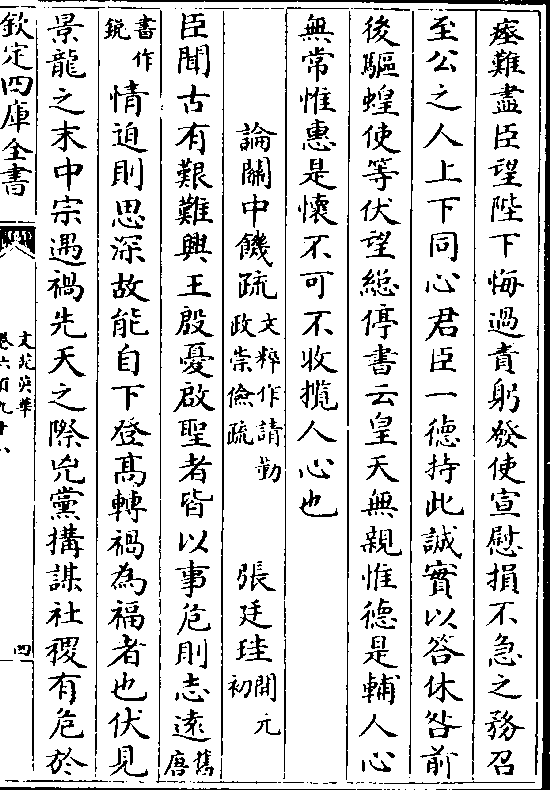 瘞難盡臣望陛下悔過責躬發使宣慰損不急之務召
至公之人上下同心君臣一德持此誠實以答休咎前
後驅蝗使等伏望總停書云皇天無親惟德是輔人心
無常惟惠是懷不可不收攬人心也
論關中饑疏文粹作請勤政崇儉疏 張廷珪開元初
臣聞古有艱難興王殷憂啟聖者皆以事危則志遠舊唐
書作銳情迫則思深故能自下登髙轉禍為福者也伏見
景龍之末中宗遇禍先天之際兇黨搆謀社稷有危於
欽定四庫全書
文苑英華
卷六百九十八
四